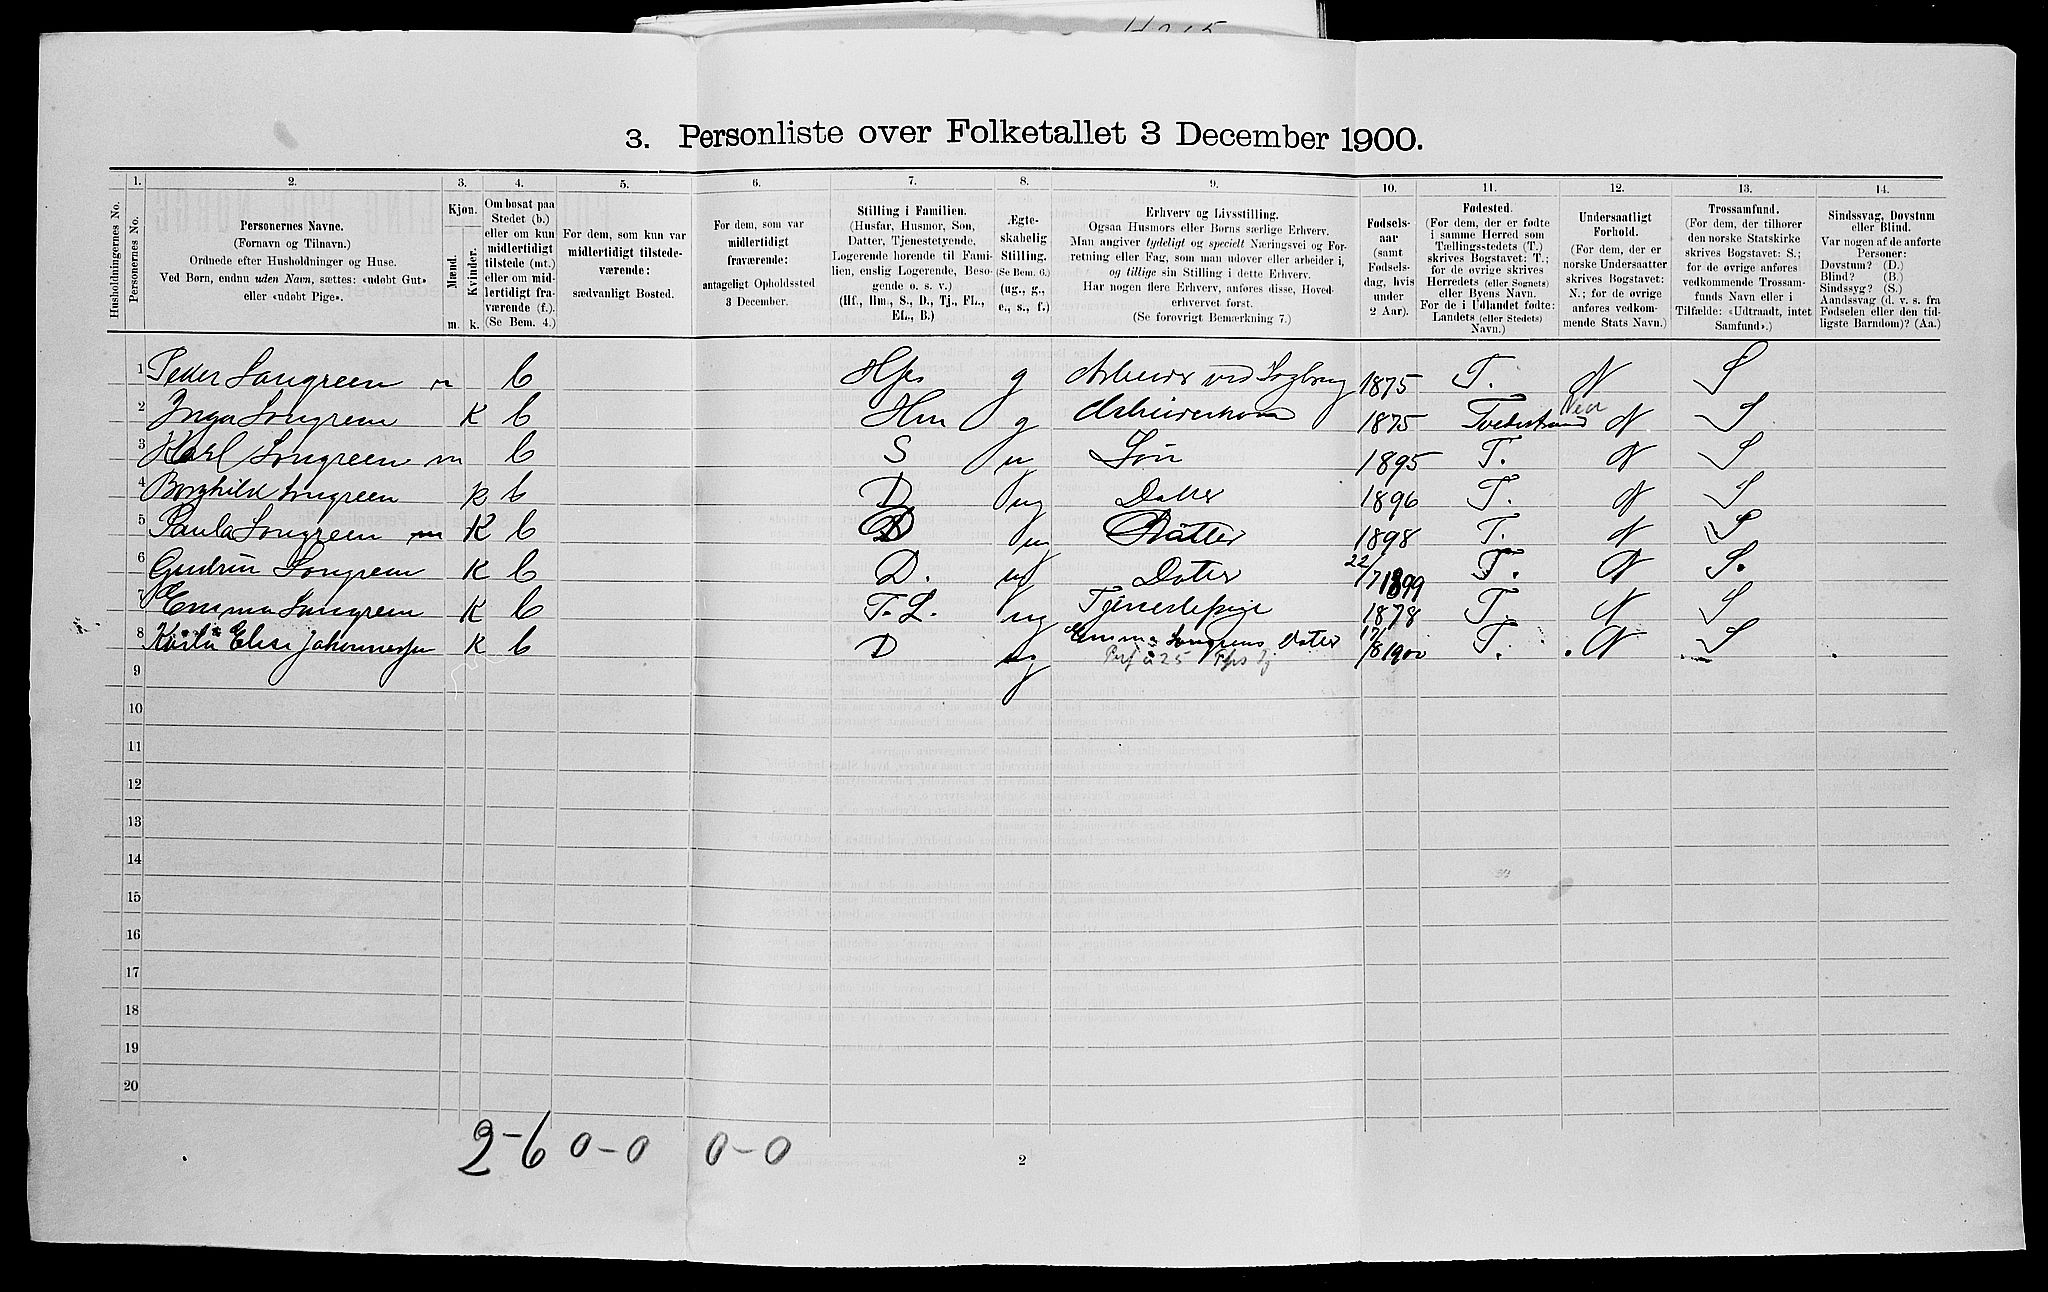 3. Personliste over Folketallet 3 December 1900.
Husholdningernes No.
1.
Personernes No.
2.
Personernes Navne.
(Fornavn og Tilnavn.)
Ordnede efter Husholdninger og Huse.
Ved Børn, endnu uden Navn, sættes: «udøbt Gut»
eller «udøbt Pige».
3.
Kjøn.
Mænd.
Kvinder.
m. k.
4.
Om bosat paa
Stedet (b.)
eller om kun
midlertidigt
tilstede (mt.)
eller om mid-
lertidigt fra-
værende (f.).
(Se Bem. 4.)
5.
For dem, som kun var
midlertidigt tilstede-
værende:
sædvanligt Bosted.
6.
For dem, som var
midlertidigt
fraværende:
antageligt Opholdssted
3 December.
7.
Stilling i Familien.
(Husfar, Husmor, Søn,
Datter, Tjenestetyende,
Logerende hørende til Fami-
lien, enslig Logerende, Besø-
gende o. s. v.)
(Hf., Hm., S., D., Tj., FL.,
EL., B.)
8.
Ægte-
skabelig
Stilling.
(Se Bem. 6.)
(ug., g.,
e., s., f.)
9.
Erhverv og Livsstilling.
Ogsaa Husmors eller Børns særlige Erhverv.
Man angiver tydeligt og specielt Næringsvei og For-
retning eller Fag, som man udøver eller arbeider i,
og tillige sin Stilling i dette Erhverv.
Har nogen flere Erhverv, anføres disse, Hoved-
erhvervet først.
(Se forøvrigt Bemærkning 7.)
10.
Fødsels-
aar
(samt
Fødsels-
dag, hvis
under
2 Aar).
11.
Fødested.
(For dem, der er fødte
i samme Herred som
Tællingsstedets (T.)
skrives Bogstavet: T.;
for de øvrige skrives
Herredets (eller Sognets)
eller Byens Navn.
For de i Udlandet fødte:
Landets (eller Stedets)
Navn.)
12.
Undersaatligt
Forhold.
(For dem, der er
norske Undersaatter
skrives Bogstavet:
N.; for de øvrige
anføres vedkom-
mende Stats Navn.)
13.
Trossamfund.
(For dem, der tilhører
den norske Statskirke
skrives Bogstavet: S.;
for de øvrige anføres
vedkommende Trossam-
funds Navn eller i
Tilfælde: «Udtraadt, intet
Samfund».)
14.
Sindssvag, Døvstum
eller Blind.
Var nogen af de anførte
Personer:
Døvstum? (D.)
Blind? (B.)
Sindssyg? (S.)
Aandssvag (d. v. s. fra
Fødselen eller den tid-
ligste Barndom)? (Aa.)
1 Peder Songreen m b g 1875 T. N S
2 Inga Songreen K b Hm g 1875 Tvedestrand N S
3 Karl Songreen m b S u Søn 1895 T. N S
4 Borghild Songreen k b D ug Datter 1896 T. N S
5 Paula Songreen m K b D ug Datter 1898 T. N S
6 Gudrun Songreen K b D. ug Dater 22/7 1899 T. N S.
7 Emma Songreen K b T. L. ug Tjenestepige 1878 T. N S
8 Elise Johannessen K b D ug Emma Songreens Dater 17/8 1900 T. N S
9
10
11
12
13
14
15
16
17
18
19
20
2-6 0-0 0-0
2